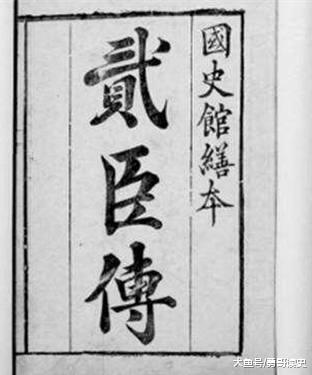 國史館繕本
貳臣傳
大鱼号/勇哥读史